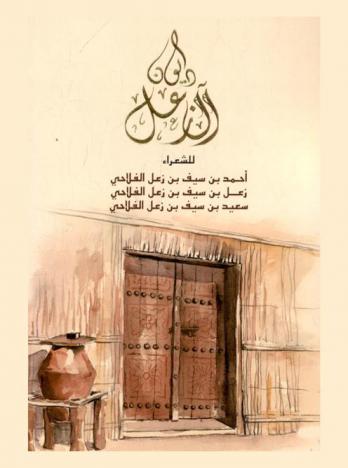 ديوان
آل زعل
للشعراء
أحمد بن سيف بن زعل الفلاحي
زعـــل بن سيف بن زعل الفلاحي
سعيد بن سيف بن زعل الفلاحي